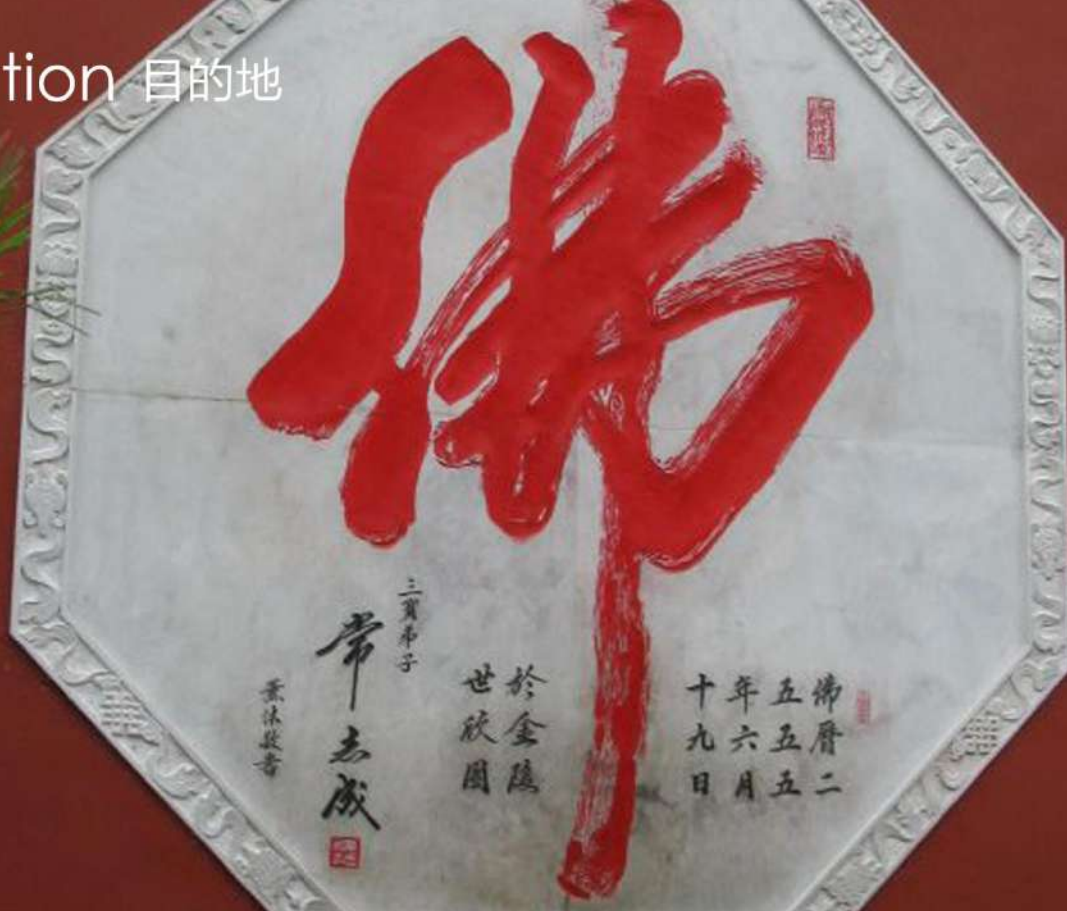 tion 目的地
佛
佛曆二
五五五
年六月
十九日
於金陵
世欣園
三寶弟子
常志成
熏沐敬書